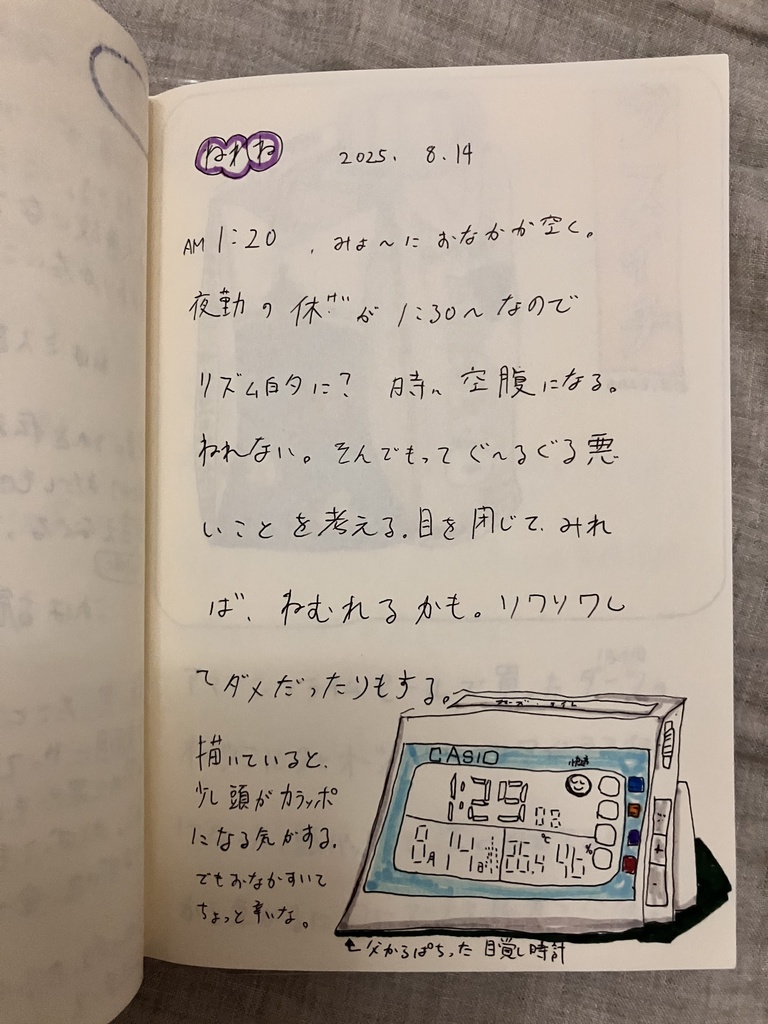 ねれね 2025. 8.14
AM 1:20 、みょ〜に おなかが空く。
夜勤の 休けいが 1:30〜なので
リズム的に? 時々 空腹になる。
ねれない。そんでもって ぐ〜るぐる悪
いことを考える。目を閉じて、みれ
ば、ねむれるかも。ソワソワし
てダメだったりもする。
描いていると、
少し頭がカラッポ
になる気がする。
でもおなかすいて
ちょっと辛いな。
CASIO
快適
1:23 08
8月14日 26.4℃ 46%
+
-
父からぱちった 目覚し時計